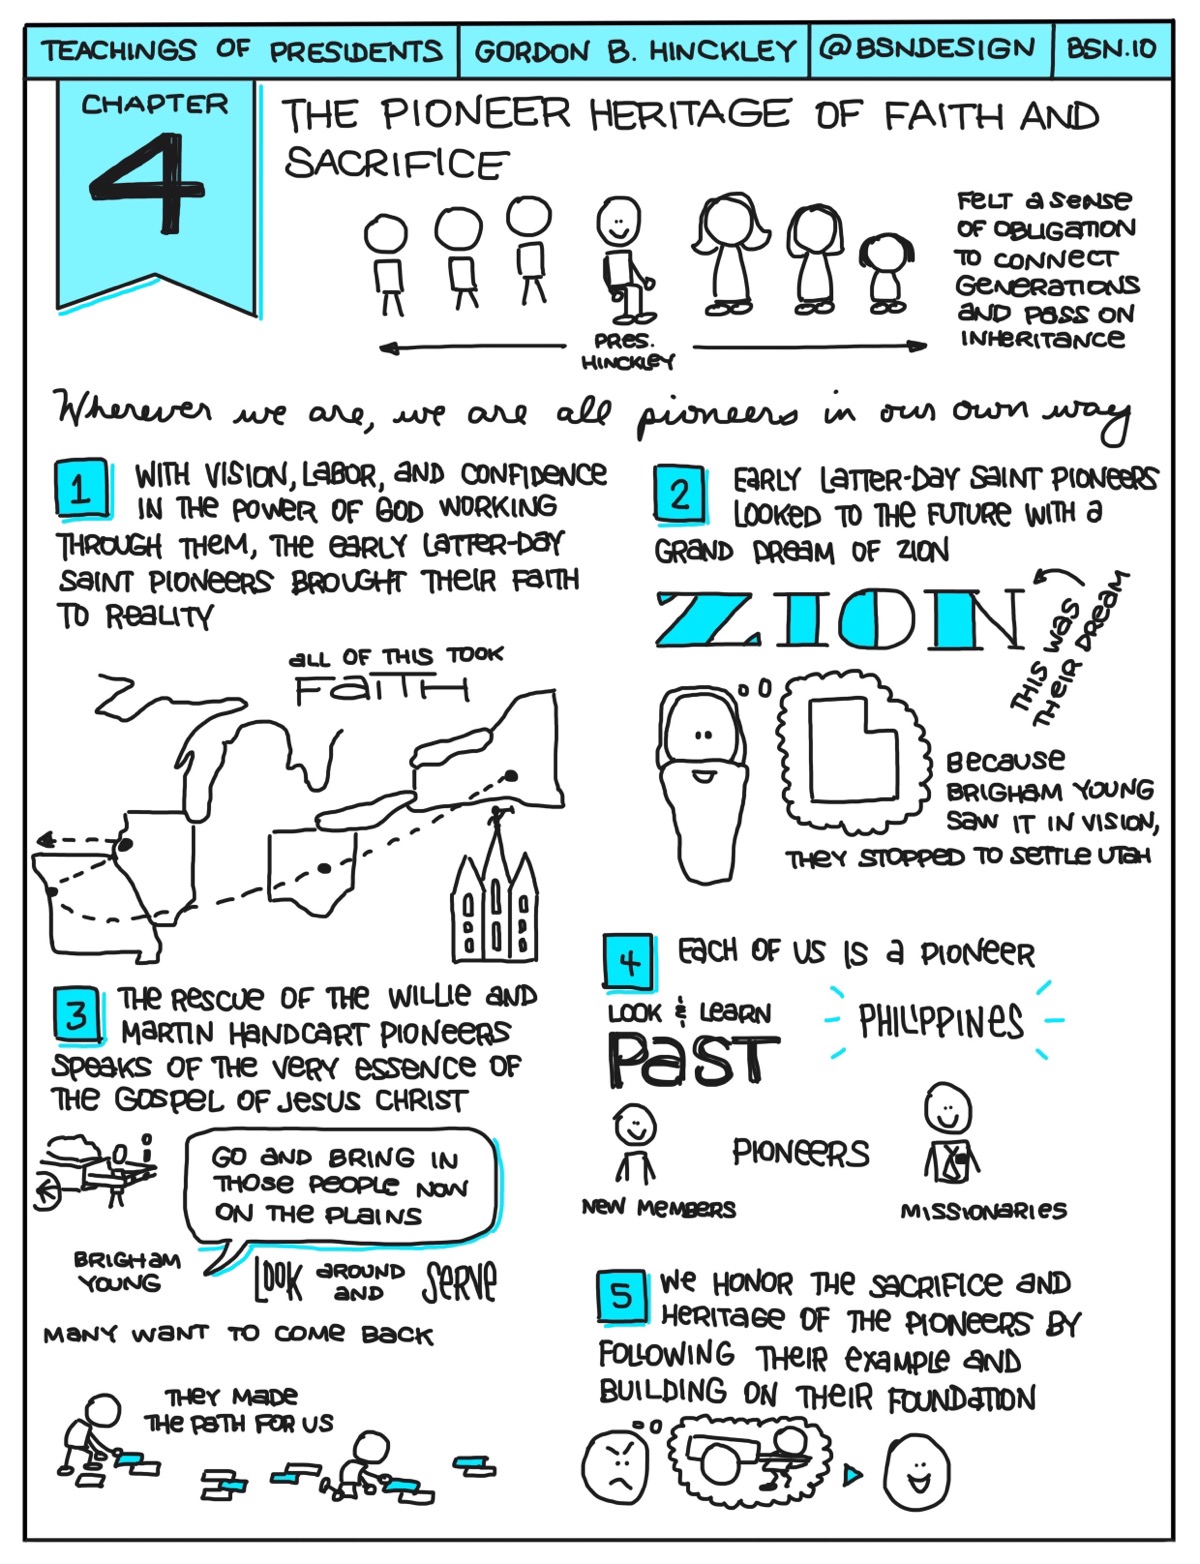 TEACHINGS OF PRESIDENTS
GORDON B. HINCKLEY
@BSNDESIGN
BSN.IO
CHAPTER
4
THE PIONEER HERITAGE OF FAITH AND
SACRIFICE
FELT A SENSE
OF OBLIGATION
TO CONNECT
GENERATIONS
AND PASS ON
INHERITANCE
PRES.
HINCKLEY
Wherever we are, we are all pioneers in our own way
1
WITH VISION, LABOR, AND CONFIDENCE
IN THE POWER OF GOD WORKING
THROUGH THEM, THE EARLY LATTER-DAY
SAINT PIONEERS BROUGHT THEIR FAITH
TO REALITY
ALL OF THIS TOOK
FAITH
2
EARLY LATTER-DAY SAINT PIONEERS
LOOKED TO THE FUTURE WITH A
GRAND DREAM OF ZION
ZION
THIS WAS
THEIR DREAM
BECAUSE
BRIGHAM YOUNG
SAW IT IN VISION,
THEY STOPPED TO SETTLE UTAH
3
THE RESCUE OF THE WILLIE AND
MARTIN HANDCART PIONEERS
SPEAKS OF THE VERY ESSENCE OF
THE GOSPEL OF JESUS CHRIST
GO AND BRING IN
THOSE PEOPLE NOW
ON THE PLAINS
BRIGHAM
YOUNG
LOOK AROUND
AND SERVE
MANY WANT TO COME BACK
THEY MADE
THE PATH FOR US
4
EACH OF US IS A PIONEER
LOOK & LEARN
PAST
PHILIPPINES
PIONEERS
NEW MEMBERS
MISSIONARIES
5
WE HONOR THE SACRIFICE AND
HERITAGE OF THE PIONEERS BY
FOLLOWING THEIR EXAMPLE AND
BUILDING ON THEIR FOUNDATION